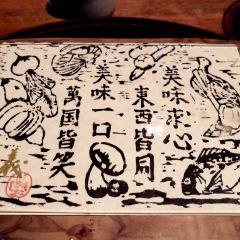 美味求心
東西皆同
美味一口
萬国皆笑
義